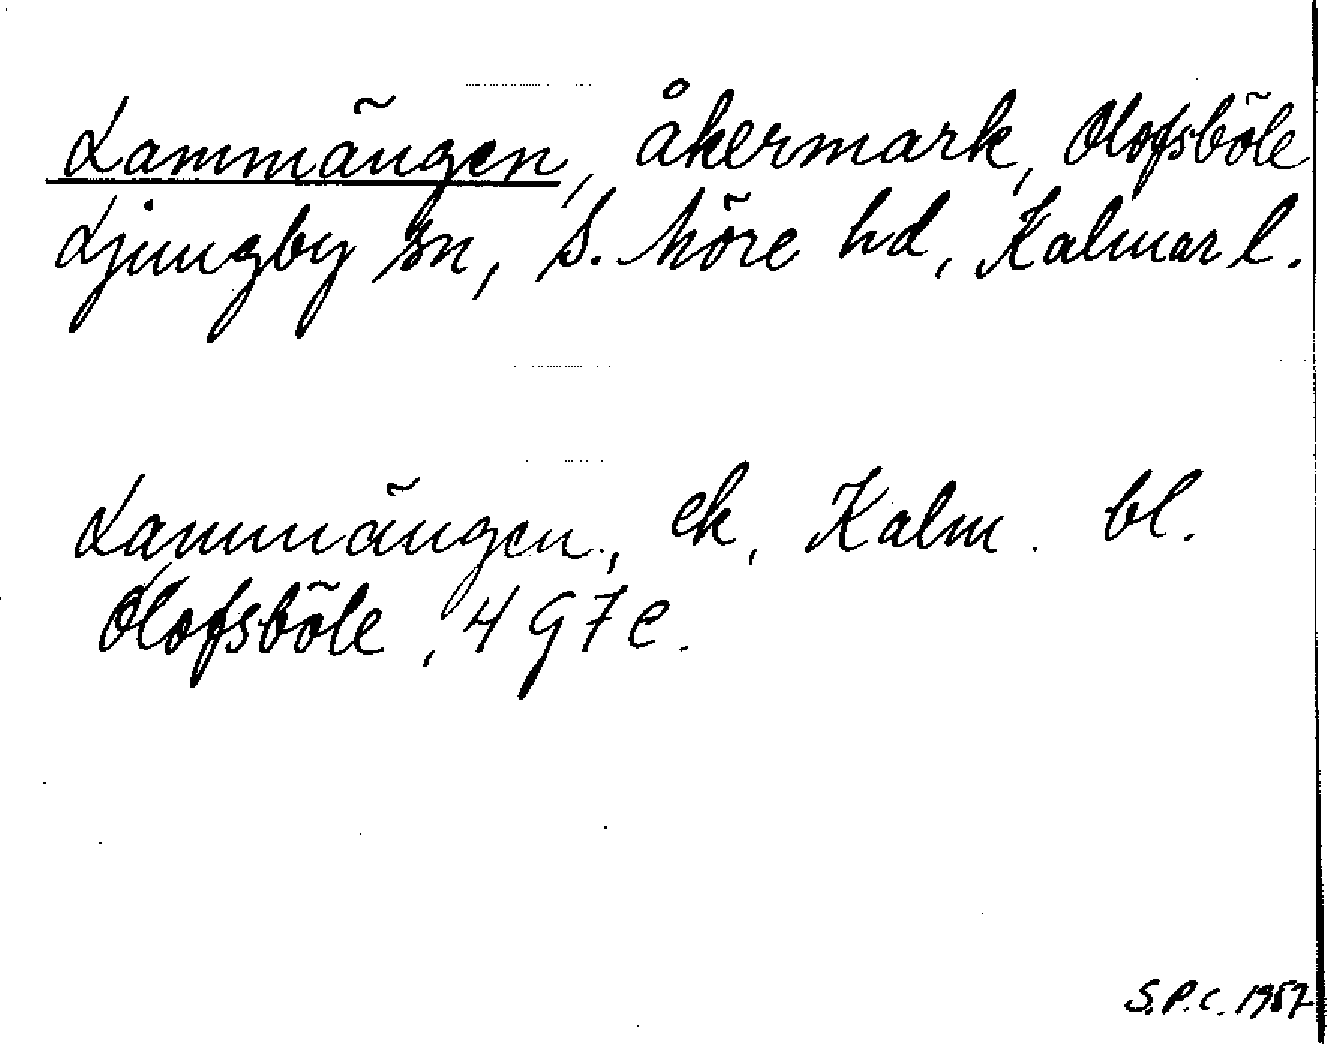 Lammängen, åkermark, Olofsböle
Ljungby sn, S. Möre hd, Kalmar l.
Lammängen, ek, Kalm. bl.
Olofsböle, 4 G 7 e.
S.P.C. 1957